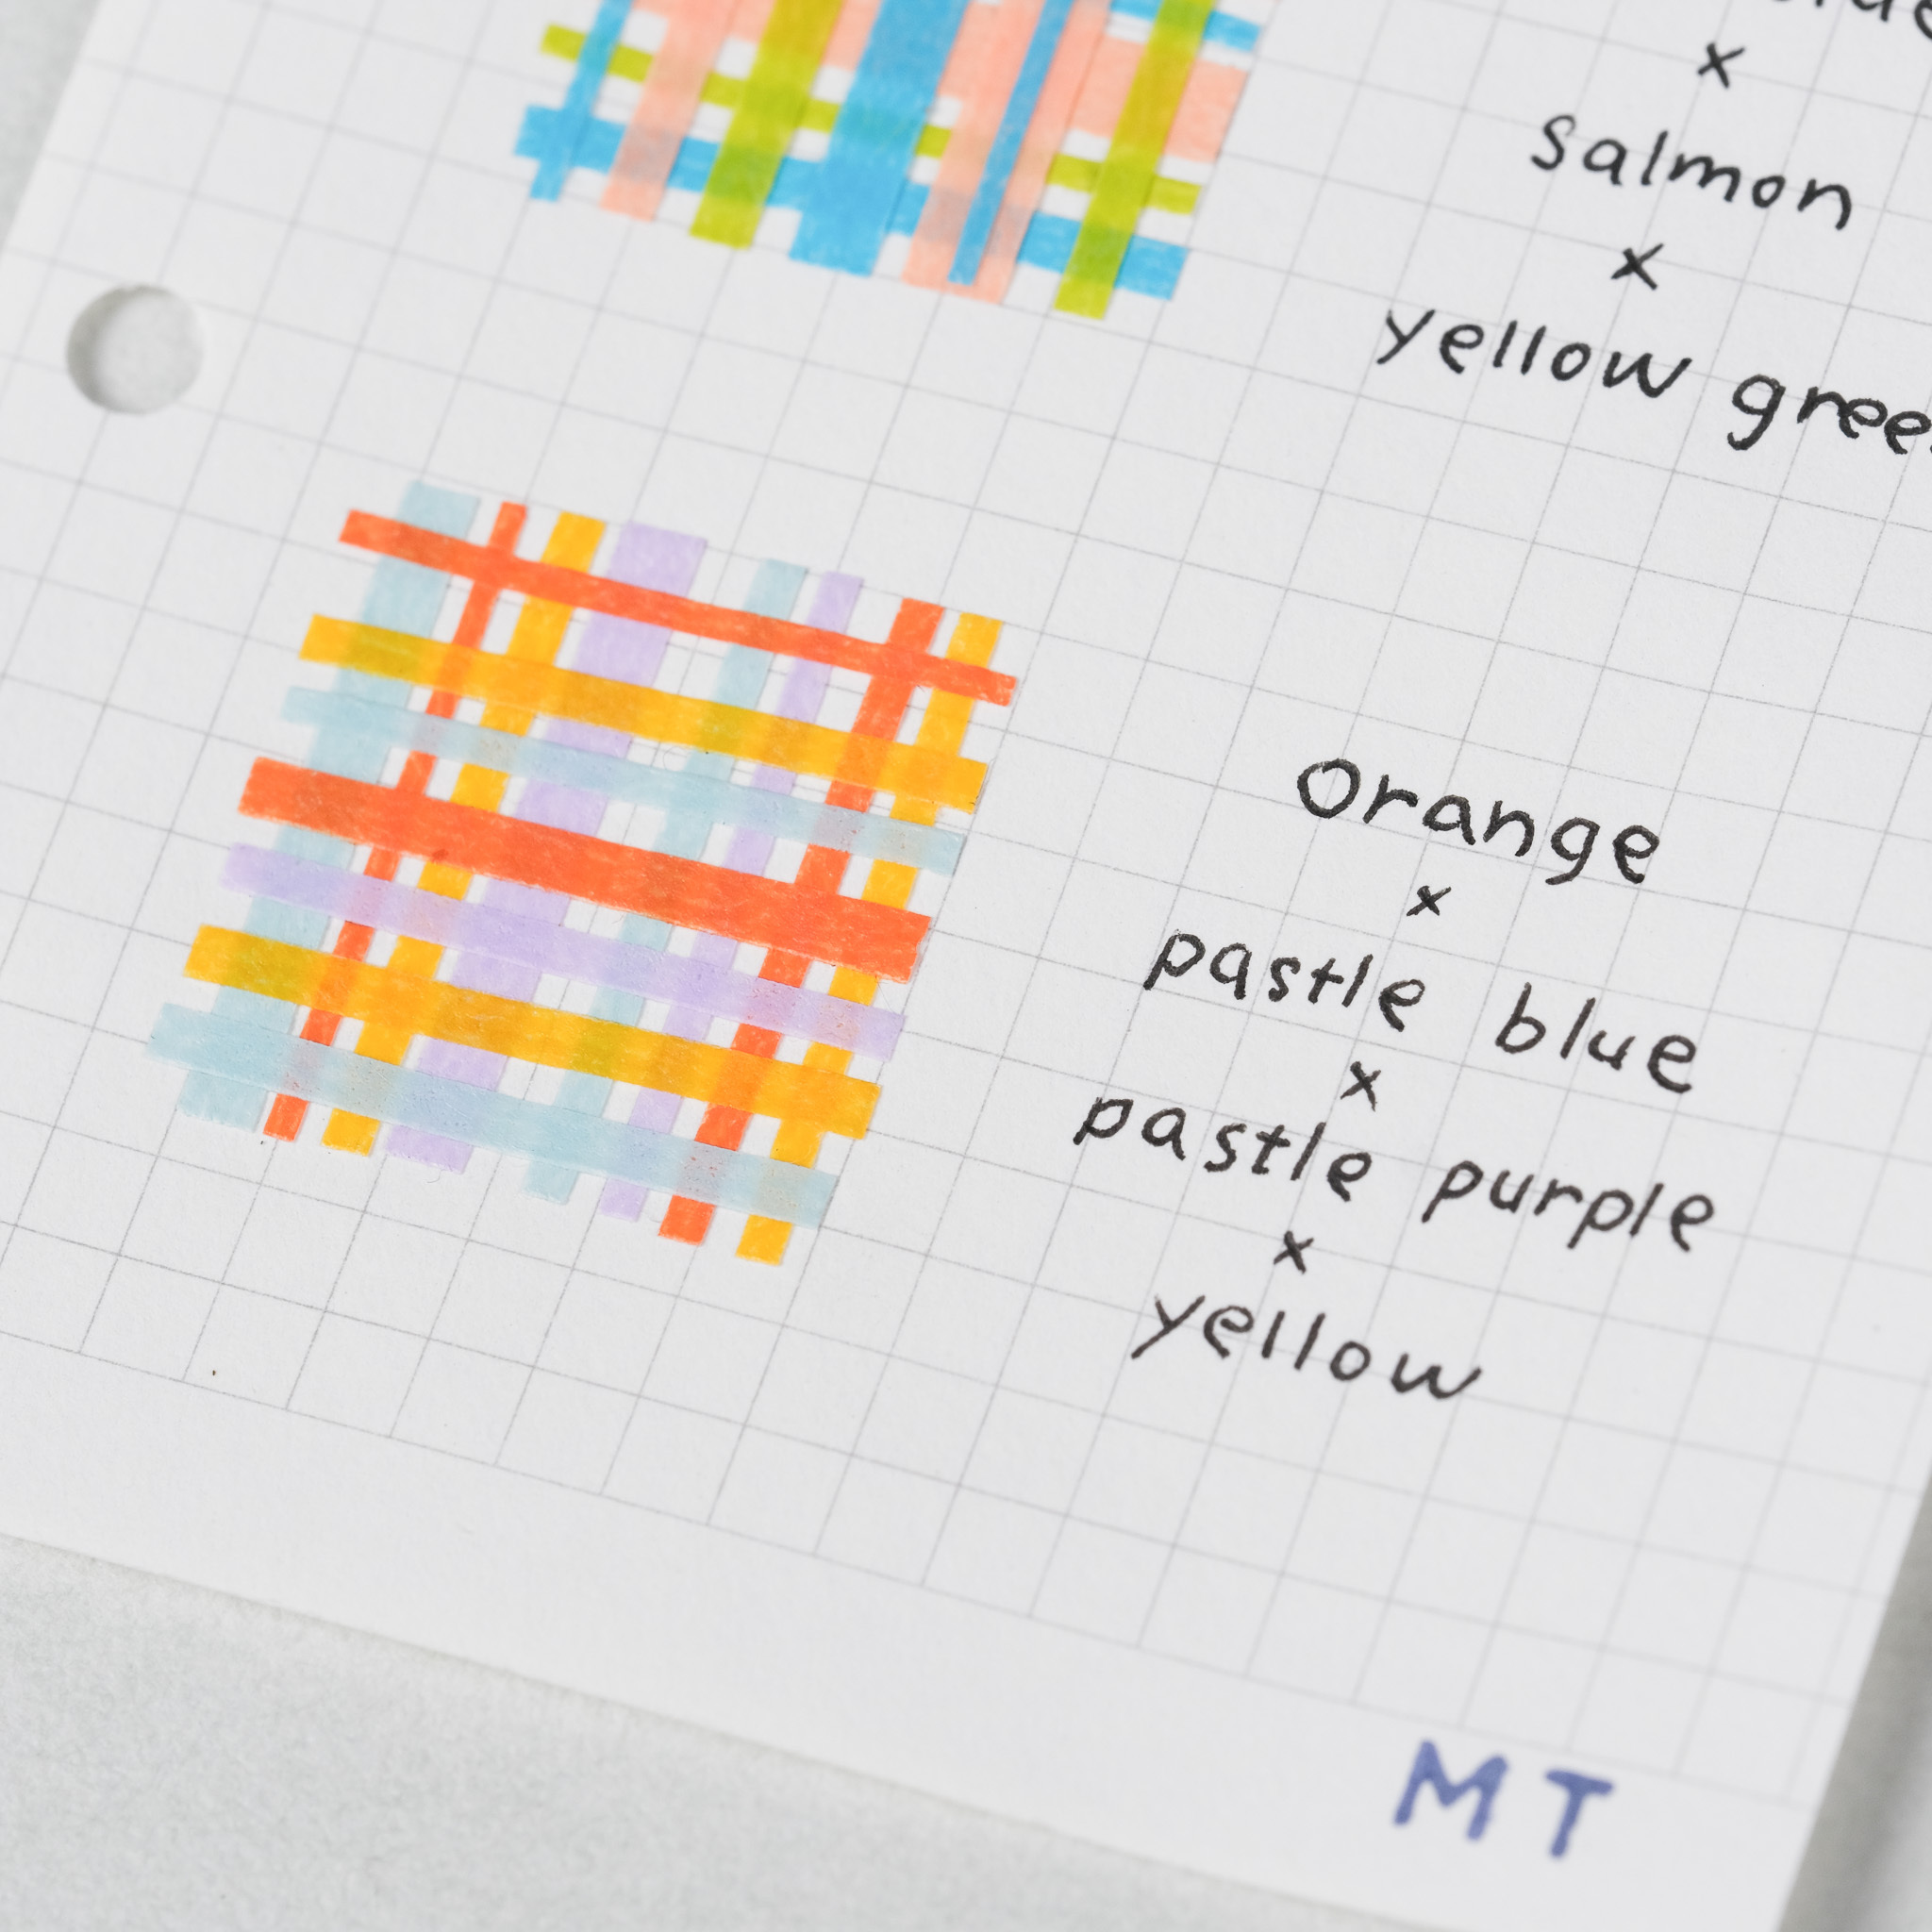 x
salmon
x
yellow
orange
x
pastle blue
x
pastle purple
x
yellow
MT